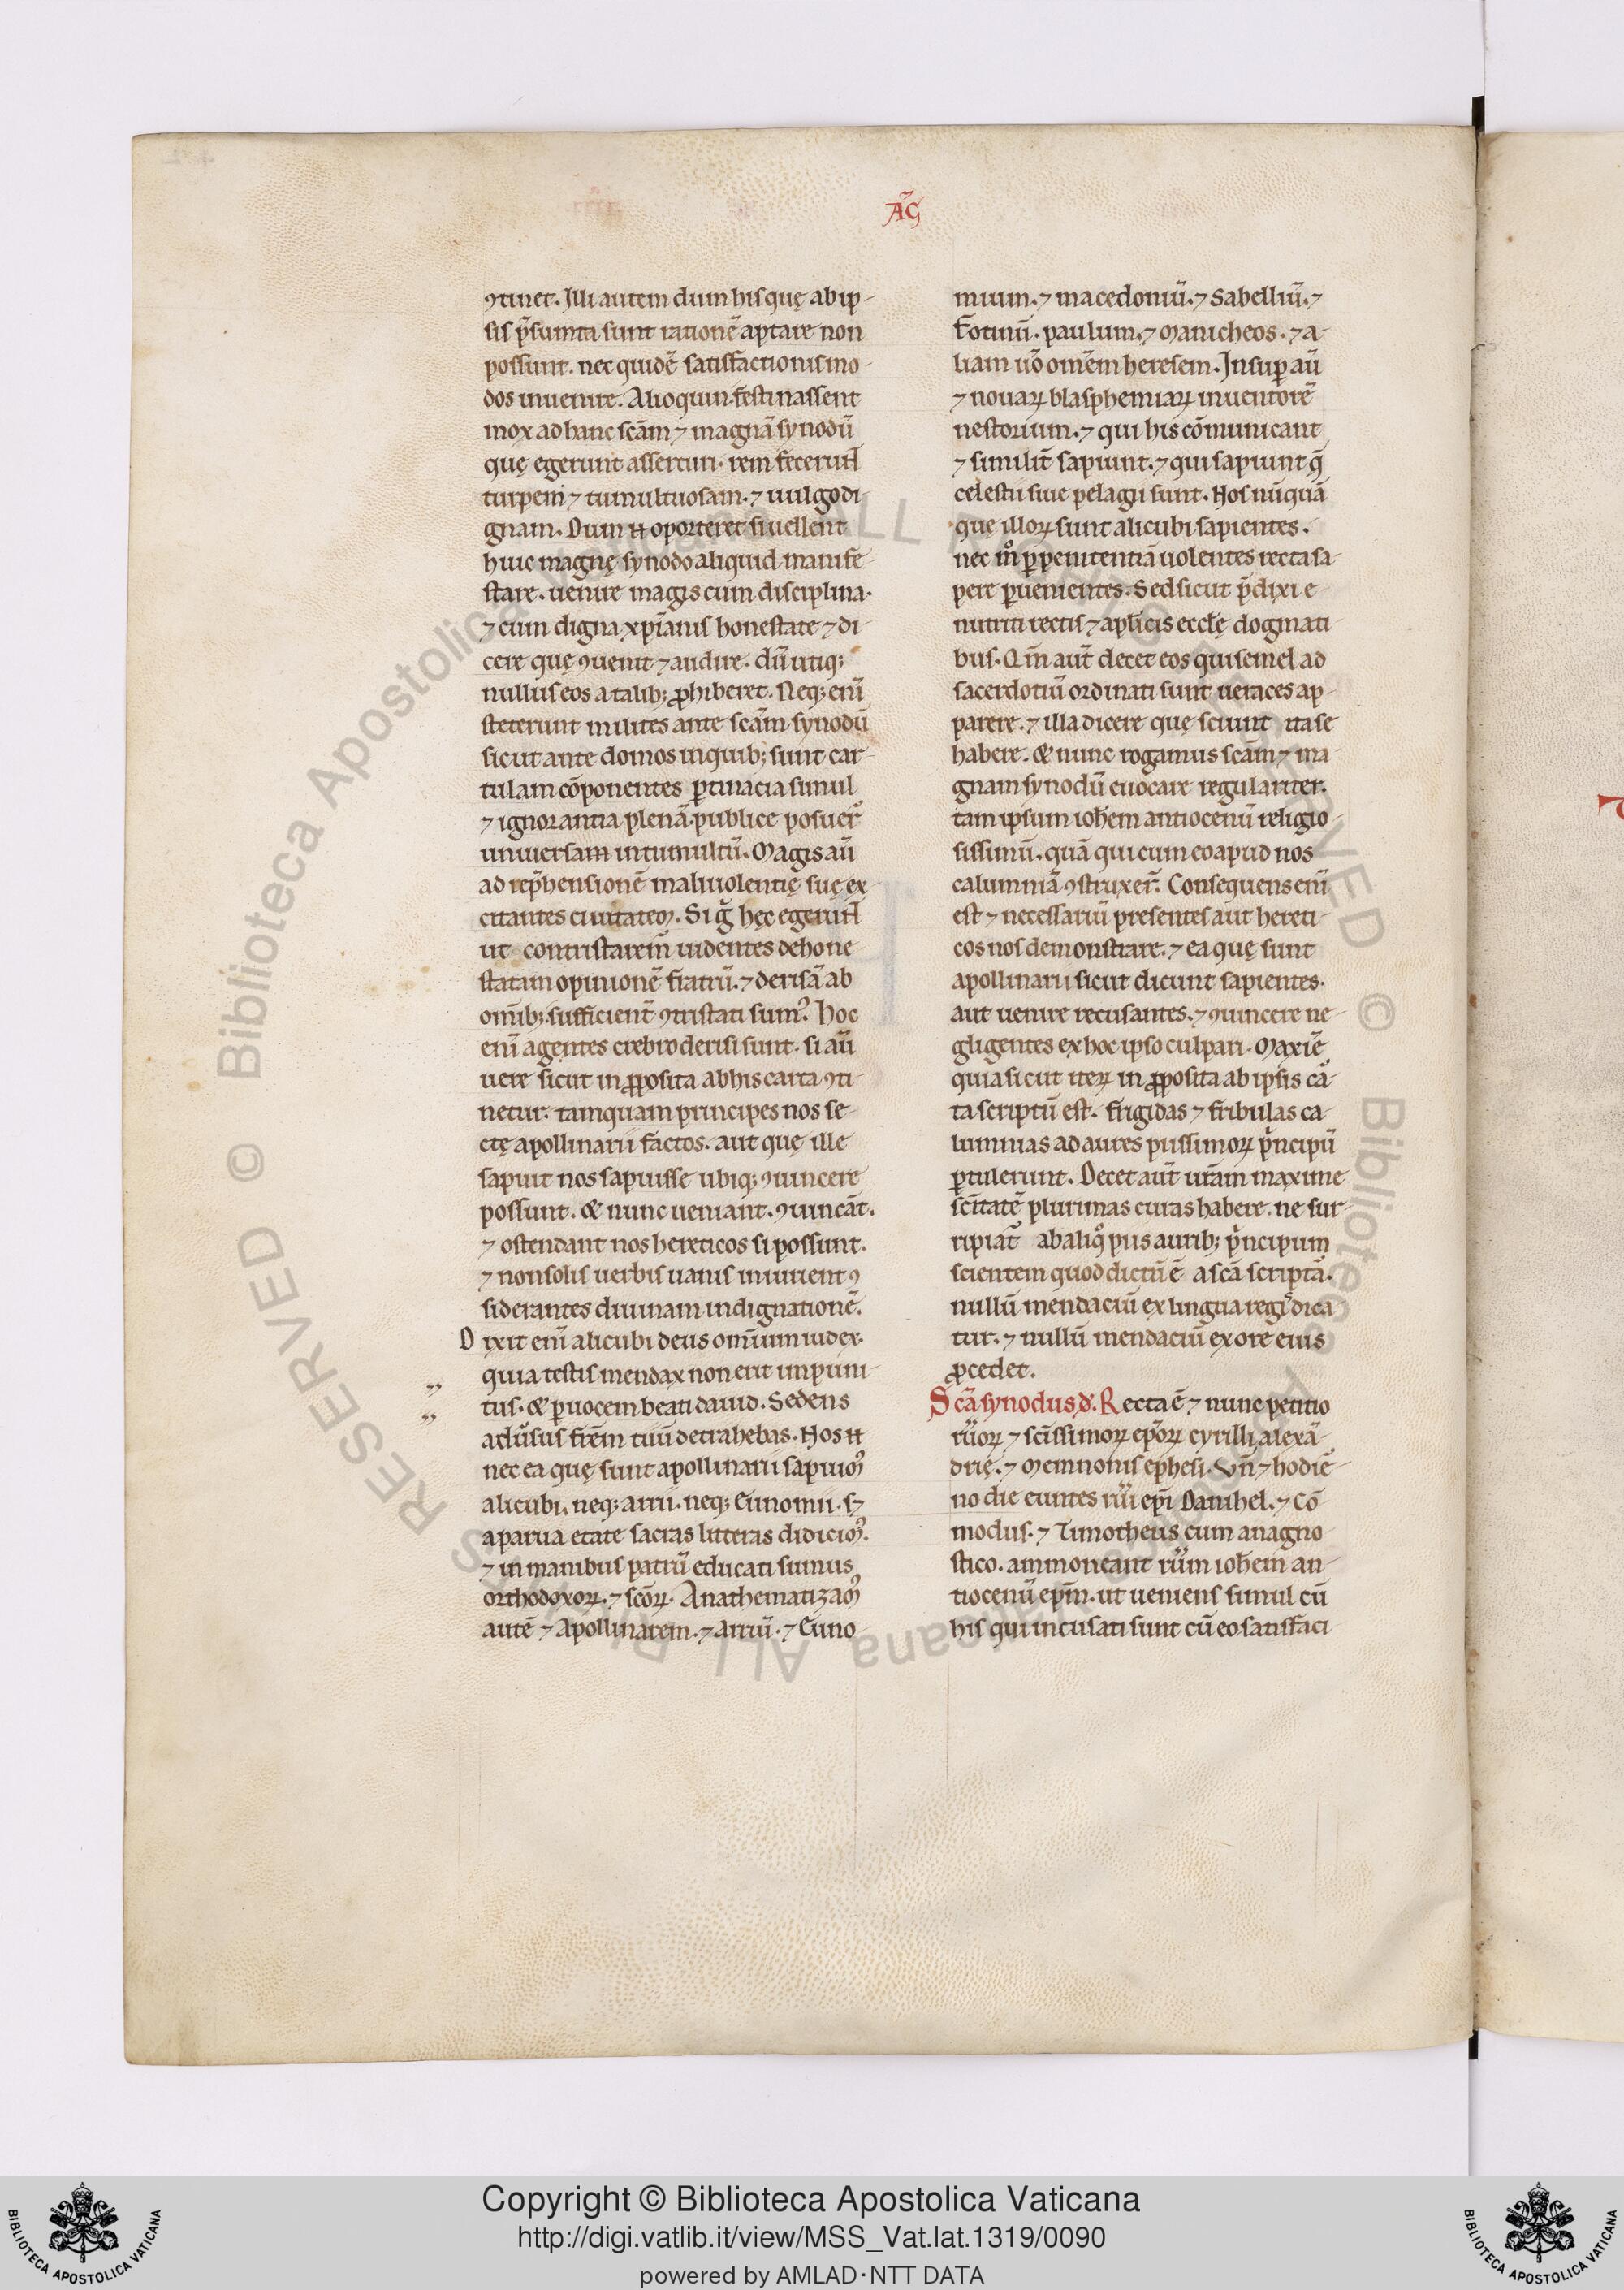 AC̄
ꝯtinet. Illi autem dum his quę ab ip-
sis p̄sumta sunt rationē aptare non
possunt. nec quidē satisfactionis mo-
dos inuenire. Alioquin festinassent
mox ad hanc sc̄am ⁊ magnā synodū
quę egerunt asserturi. rem feceruƞt
turpem ⁊ tumultuosam. ⁊ uulgo di-
gnam. Dum eī oporteret si uellent
huic magnę synodo aliquid manife-
stare. uenire magis cum disciplina.
⁊ cum digna xp̄ianis honestate ⁊ di-
cere quę ꝯuenit ⁊ audire. dū utiq;
nullus eos a talib; ꝓhiberet. Neq; eni̅
steterunt milites ante sc̄am synodū
sicut ante domos in quib; sunt car-
tulam cōponentes ꝑtinacia simul
⁊ ignorantia plenā. publice posuer̄
uniuersam in tumultū. Magis aū
ad rep̄hensionē maliuolentię suę ex-
citantes ciuitatem. Si g̊ hęc egeruƞt
ut contristarem̄ uidentes deho ne-
statam opinionē fratrū. ⁊ derisā ab
omīb; sufficient̄ ꝯtristati sumꝰ. Hoc
eni̅ agentes crebro derisi sunt. si aū
uere sicut in ꝓposita ab his carta ꝯti-
netur. tamquam principes nos se-
ctę apollinarii factos. aut quę ille
sapuit nos sapuisse ubiq; ꝯuincere
possunt. & nunc ueniant. ꝯuincāt.
⁊ ostendant nos hereticos si possunt.
⁊ non solis uerbis uanis iniurient ꝯ
siderantes diuinam indignationē.
Dixit eni̅ alicubi deus omīum iudex.
quia testis mendax non erit inpuni-
tus. & ꝑ uocem beati dauid. Sedens
adūsus frēm tuū detrahebas. Nos eī
nec ea quę sunt apollinarii sapuimꝰ
alicubi. neq; arrii. neq; Eunomii. s;
a parua etate sacras litteras didicimꝰ.
⁊ in manibus patrū educati sumus
orthodoxoꝝ. ⁊ sc̄oꝝ. Anathematizamꝰ
autē ⁊ Apollinarem. ⁊ arriū. ⁊ Euno-
mium. ⁊ macedoniū. ⁊ Sabelliū. ⁊
Fotinū. paulum. ⁊ Manicheos. ⁊ a-
liam uō om̄em heresem. Insuꝑ aū
⁊ nouaꝝ blasphemiaꝝ inuentorē
nestorium. ⁊ qui his cōmunicant
⁊ similit̄ sapiunt. ⁊ qui sapiunt q̄
celestii siue pelagii sunt. Nos nūquā
quę illoꝝ sunt alicubi sapientes.
nec m̊ ꝑ penitentiā uolentes recta sa-
pere ꝑuenientes. Sed sicut p̄dixi e-
nutriti rectis ⁊ apl̄icis eccłę dogmati-
bus. Qm̄ aut̄ decet eos qui semel ad
sacerdotiū ordinati sunt ueraces ap-
parere. ⁊ illa dicere quę sciunt ita se
habere. & nunc rogamus sc̄am ⁊ ma-
gnam synodū euocare regulariter.
tam ipsum ioh̄em antiocenū religio-
sissimū. quā qui cum eo apud nos
calumniā ꝯstruxer̄. Consequens eni̅
est ⁊ necessariū presentes aut hereti-
cos nos demonstrare. ⁊ ea quę sunt
apollinarii sicut dicunt sapientes.
aut uenire recusantes. ⁊ ꝯuincere ne-
gligentes ex hoc ipso culpari. Maxīe
quia sicut iteꝝ in ꝓposita ab ipsis ca-
ta scriptū est. frigidas ⁊ fribulas ca-
lumnias ad aures piissimoꝝ p̄ncipū
ꝑtulerunt. Decet aut̄ ur̄am maxime
sc̄itatē plurimas curas habere. ne sur-
ripiat̄ ab aliq̊ piis aurib; p̄ncipum
scientem quod dictū ē a sc̄a scriptā.
nullū mendaciū ex lingua regi dica-
tur. ⁊ nullū mendaciū ex ore eius
ꝓcedet.
Sc̄a synodus d̄. Recta ē ⁊ nunc petitio
rūoꝝ ⁊ sc̄issimoꝝ ep̄oꝝ cyrilli alexā-
drię. ⁊ Memnonis ephesi. Un̄ ⁊ hodiē-
no die euntes rūi ep̄i Danihel. ⁊ Cō-
modus. ⁊ Timotheus cum anagno-
stico. ammoneant rūm ioh̄em an-
tiocenū ep̄m. ut ueniens simul cū
his qui incusati sunt cū eo satisfaci
Copyright © Biblioteca Apostolica Vaticana
http://digi.vatlib.it/view/MSS_Vat.lat.1319/0090
powered by AMLAD·NTT DATA
BIBLIOTECA APOSTOLICA VATICANA
BIBLIOTECA APOSTOLICA VATICANA
© Biblioteca Apostolica Vaticana ALL RIGHTS RESERVED © Biblioteca Apostolica Vaticana ALL RIGHTS RESERVED